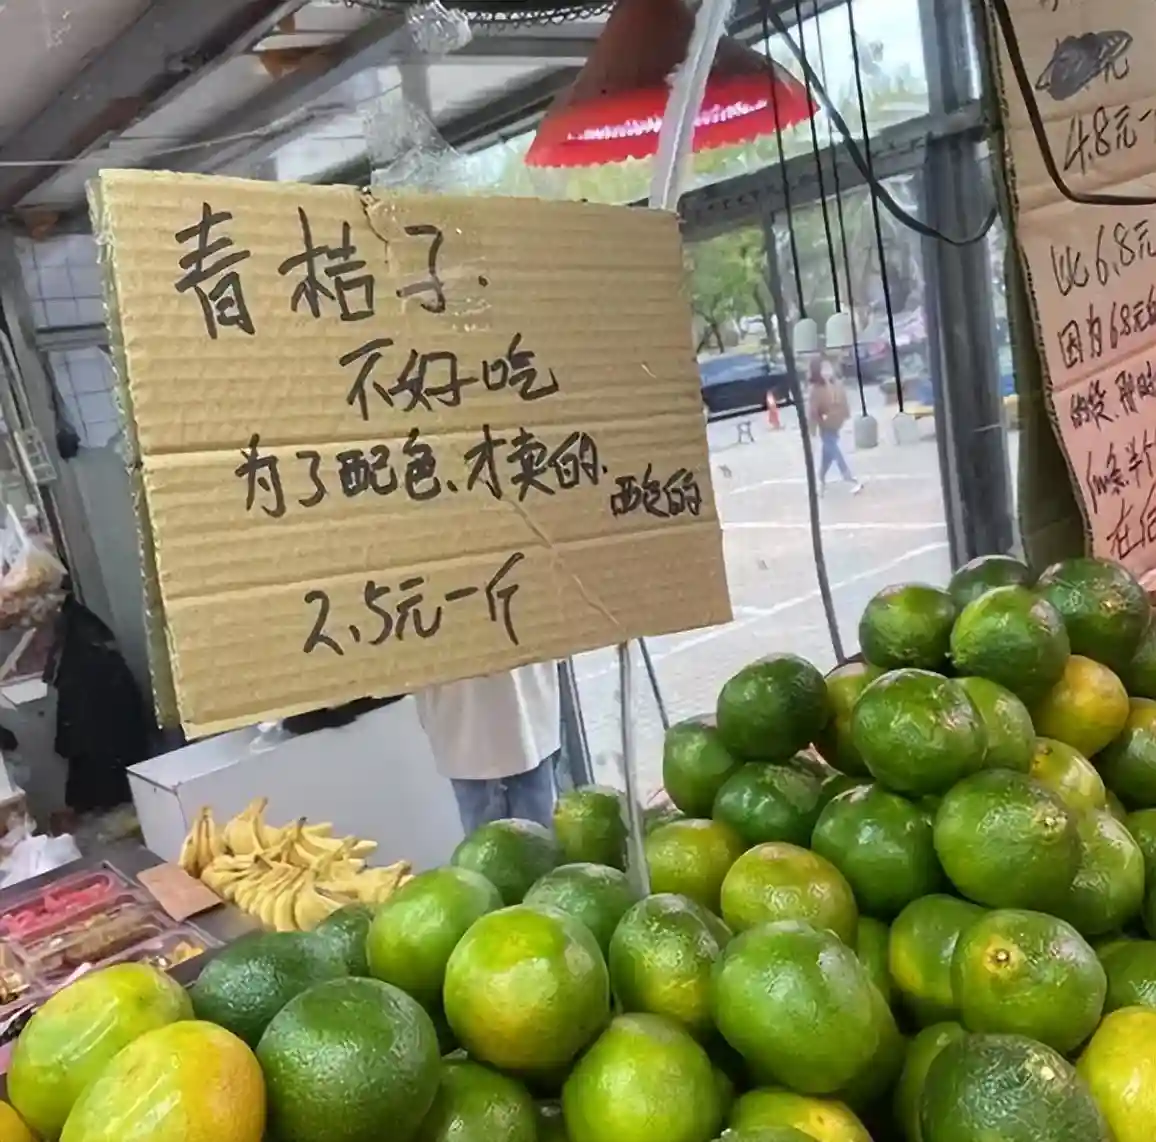 青桔子.
不好吃
为了配色、才卖的.
配色的
2.5元一斤
元
4.8元一
比6.8元
因为6.8元的
的货,那时
在后